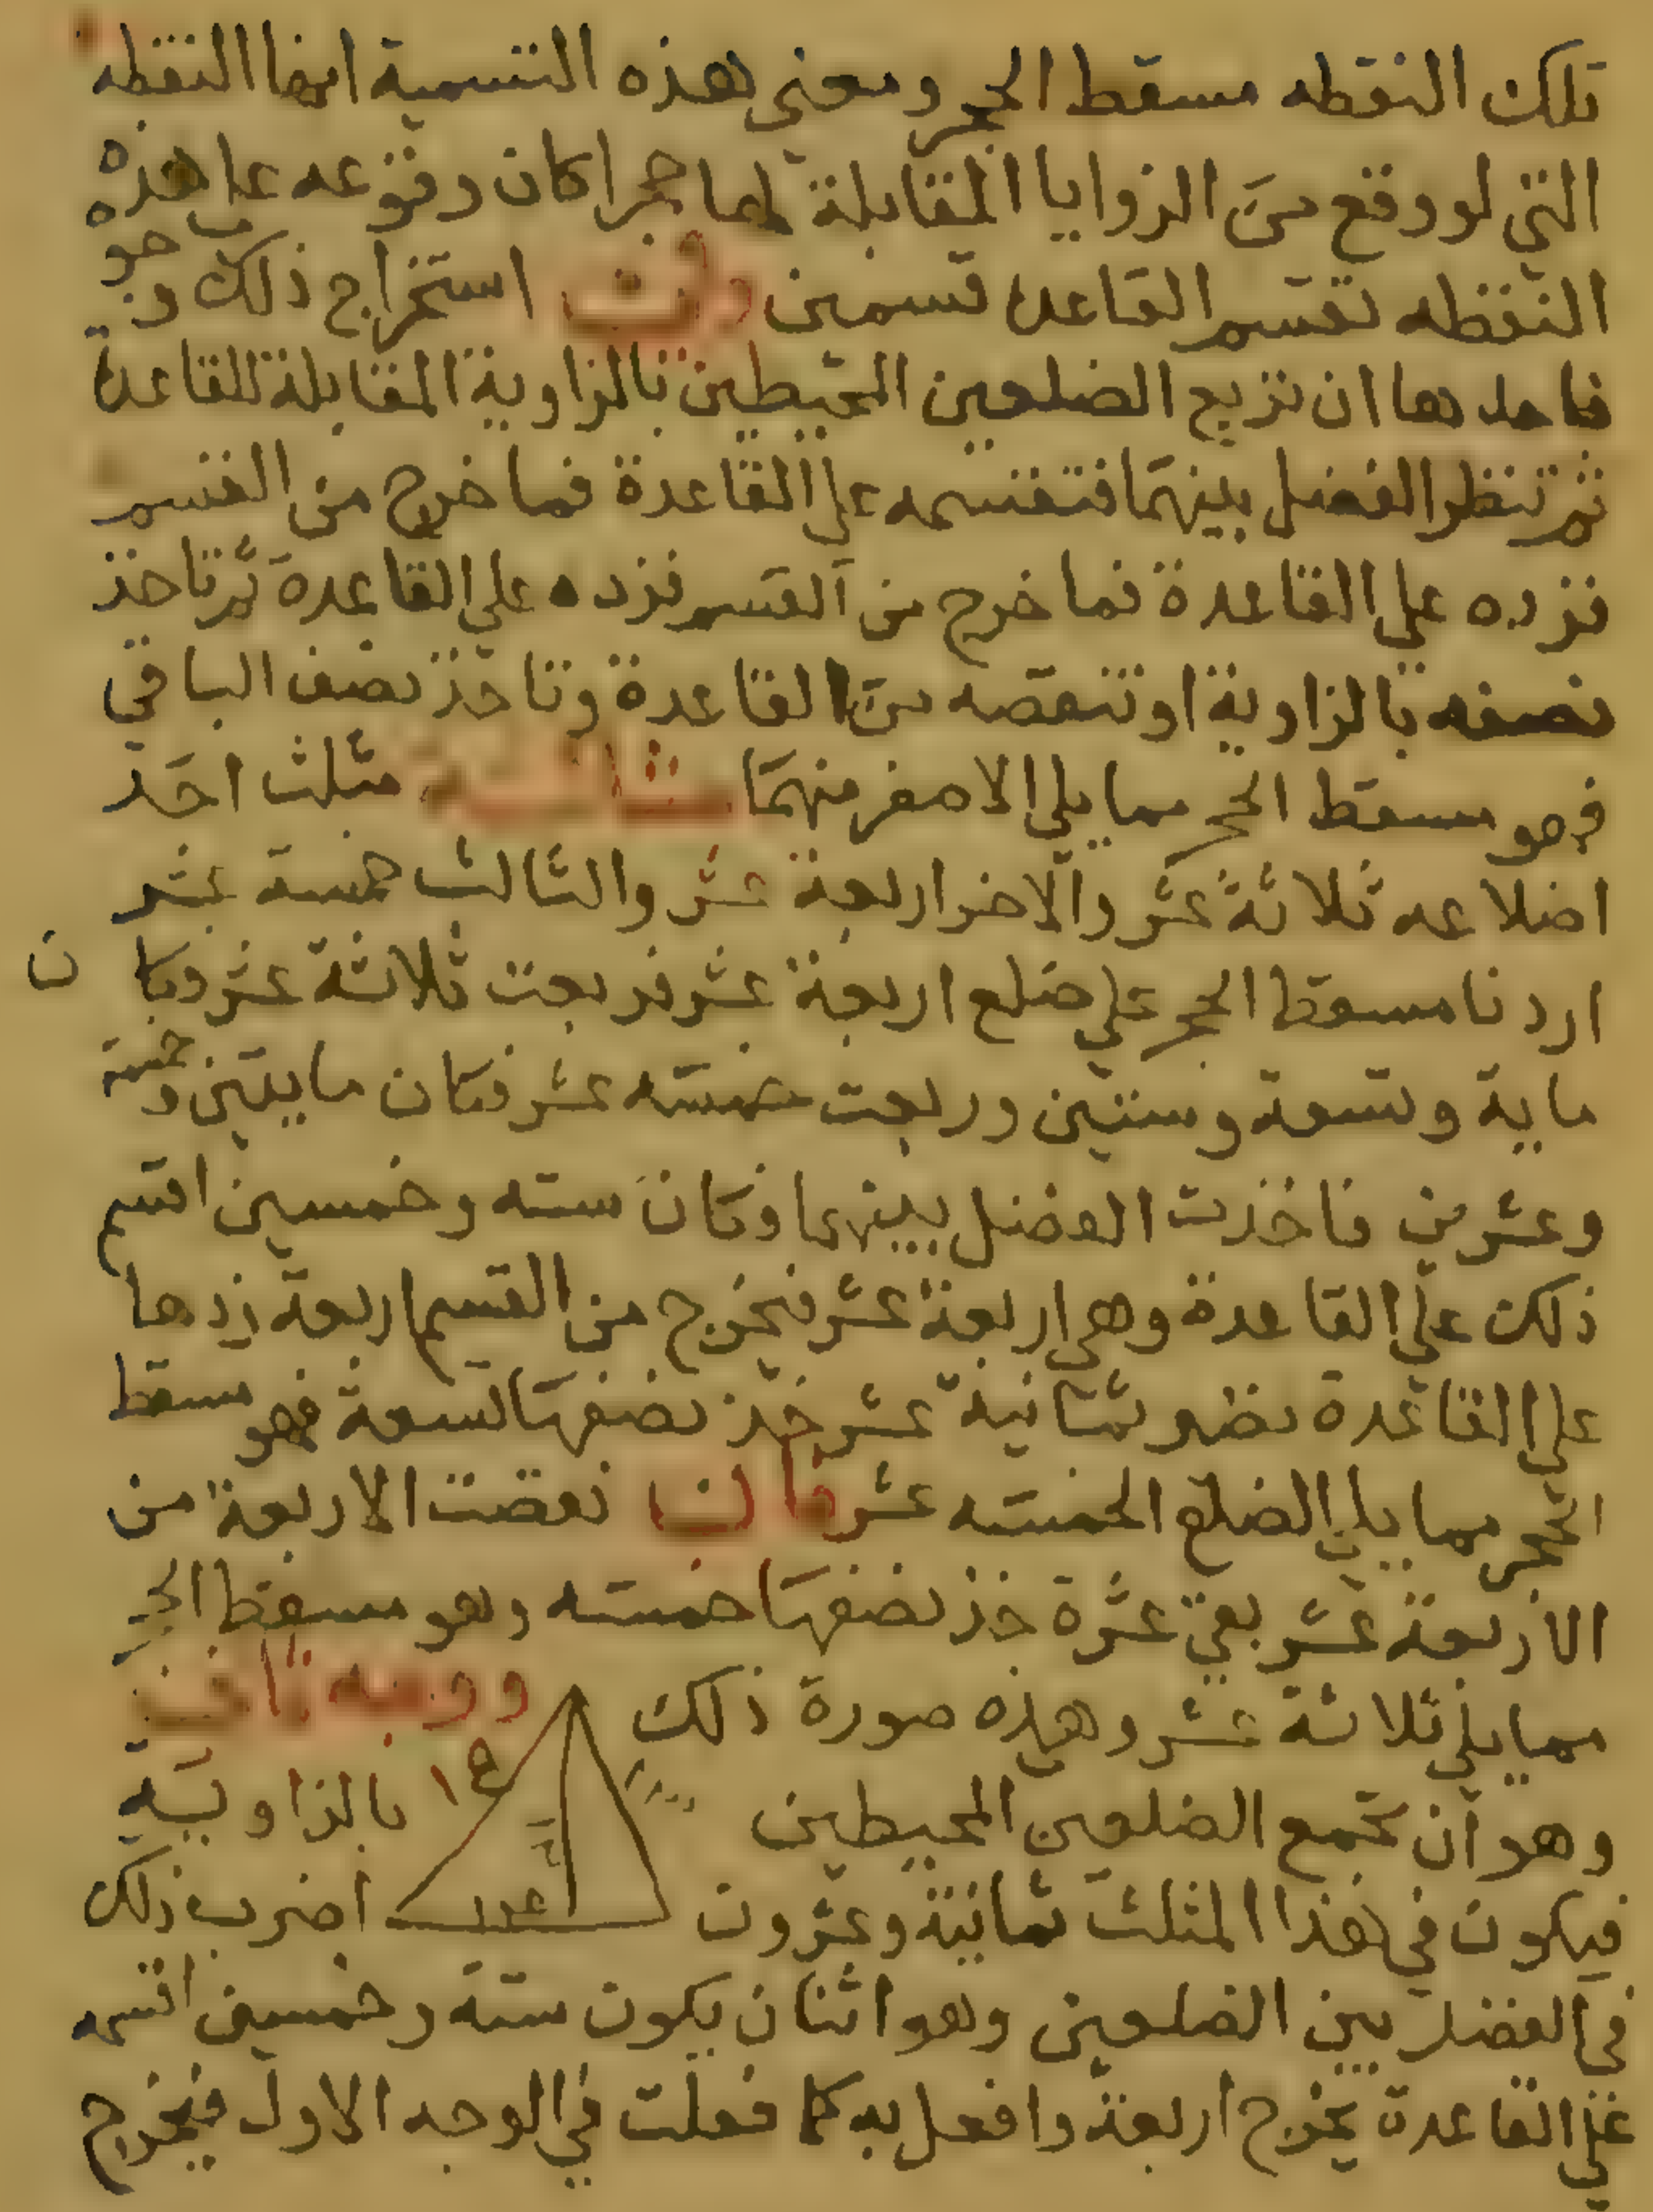 تلك النقطه مسقط الحجر ومعني هذه التسمية انها النقطه
التي لو وقع من الزوايا المقابلة لها حجرا كان وقوعه علي هذه
النقطه تقسم القاعده قسمين وفي استخراج ذلك وجوه
فاحدها ان تربع الضلعين المحيطين بالزاوية المقابلة للقاعدة
ثم تنظر الفضل بينهما فتقسمه علي القاعدة فما خرج من القسم
تزده علي القاعدة فما خرج من القسم تزده علي القاعدة ثم تاخذ
نصفه بالزاوية او تنقصه من القاعدة وتاخذ نصف الباقي
فهو مسقط الحجر مما يلي الاصغر منهما مثاله مثلث احد
اضلاعه ثلاثة عشر والاخر اربعة عشر والثالث خمسة عشر
اردنا مسقط الحجر علي ضلع اربعة عشر فربعت ثلاثة عشر وكان
ماية وتسعة وستين وربعت خمسة عشر فكان مايتين وخمسة
وعشرين فاخذت الفضل بينهما وكان سته وخمسين اقسم
ذلك علي القاعدة وهي اربعة عشر فيخرج من القسم اربعة زدها
علي القاعدة تضير ثمانية عشر خذ نصفها تسعة فهو مسقط
الحجر مما يلي الضلع الخمسه عشر فان نقصت الاربعة من
الاربعة عشر بقي عشرة خذ نصفها خمسه وهو مسقط الحجر
مما يلي ثلاثة عشر وهذه صورة ذلك ووجه ثاني
وهو ان تجمع الضلعين المحيطين بالزاوية
فيكون في هذا المثلث ثمانية وعشرون اضرب ذلك
في الفضل بين الضلعين وهو اثنان يكون ستة وخمسين اقسمه
علي القاعدة يخرج اربعة وافعل به كما فعلت في الوجه الاول فيخرج